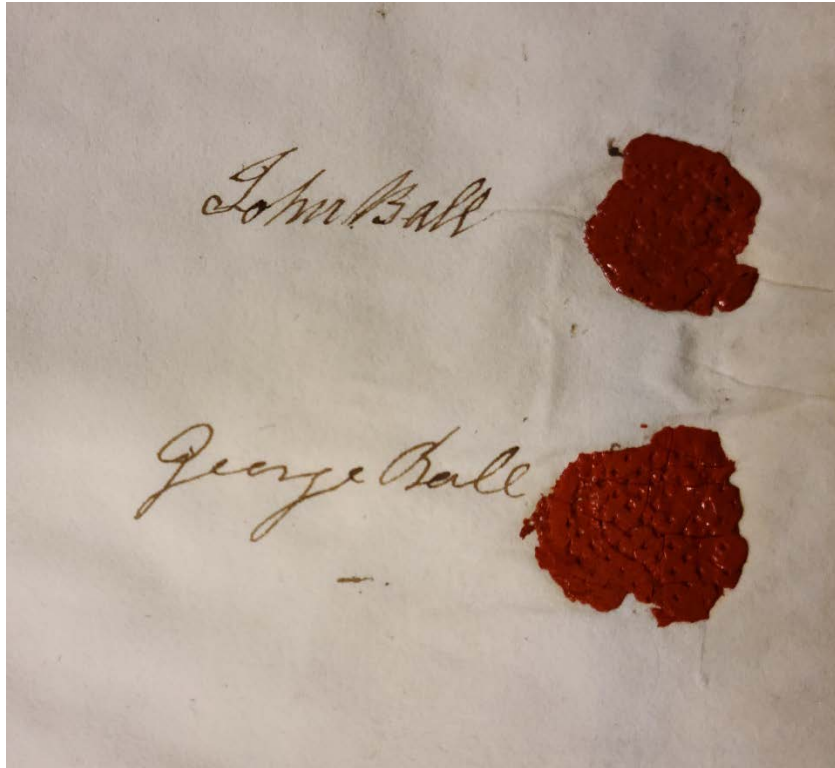 John Ball
George Ball